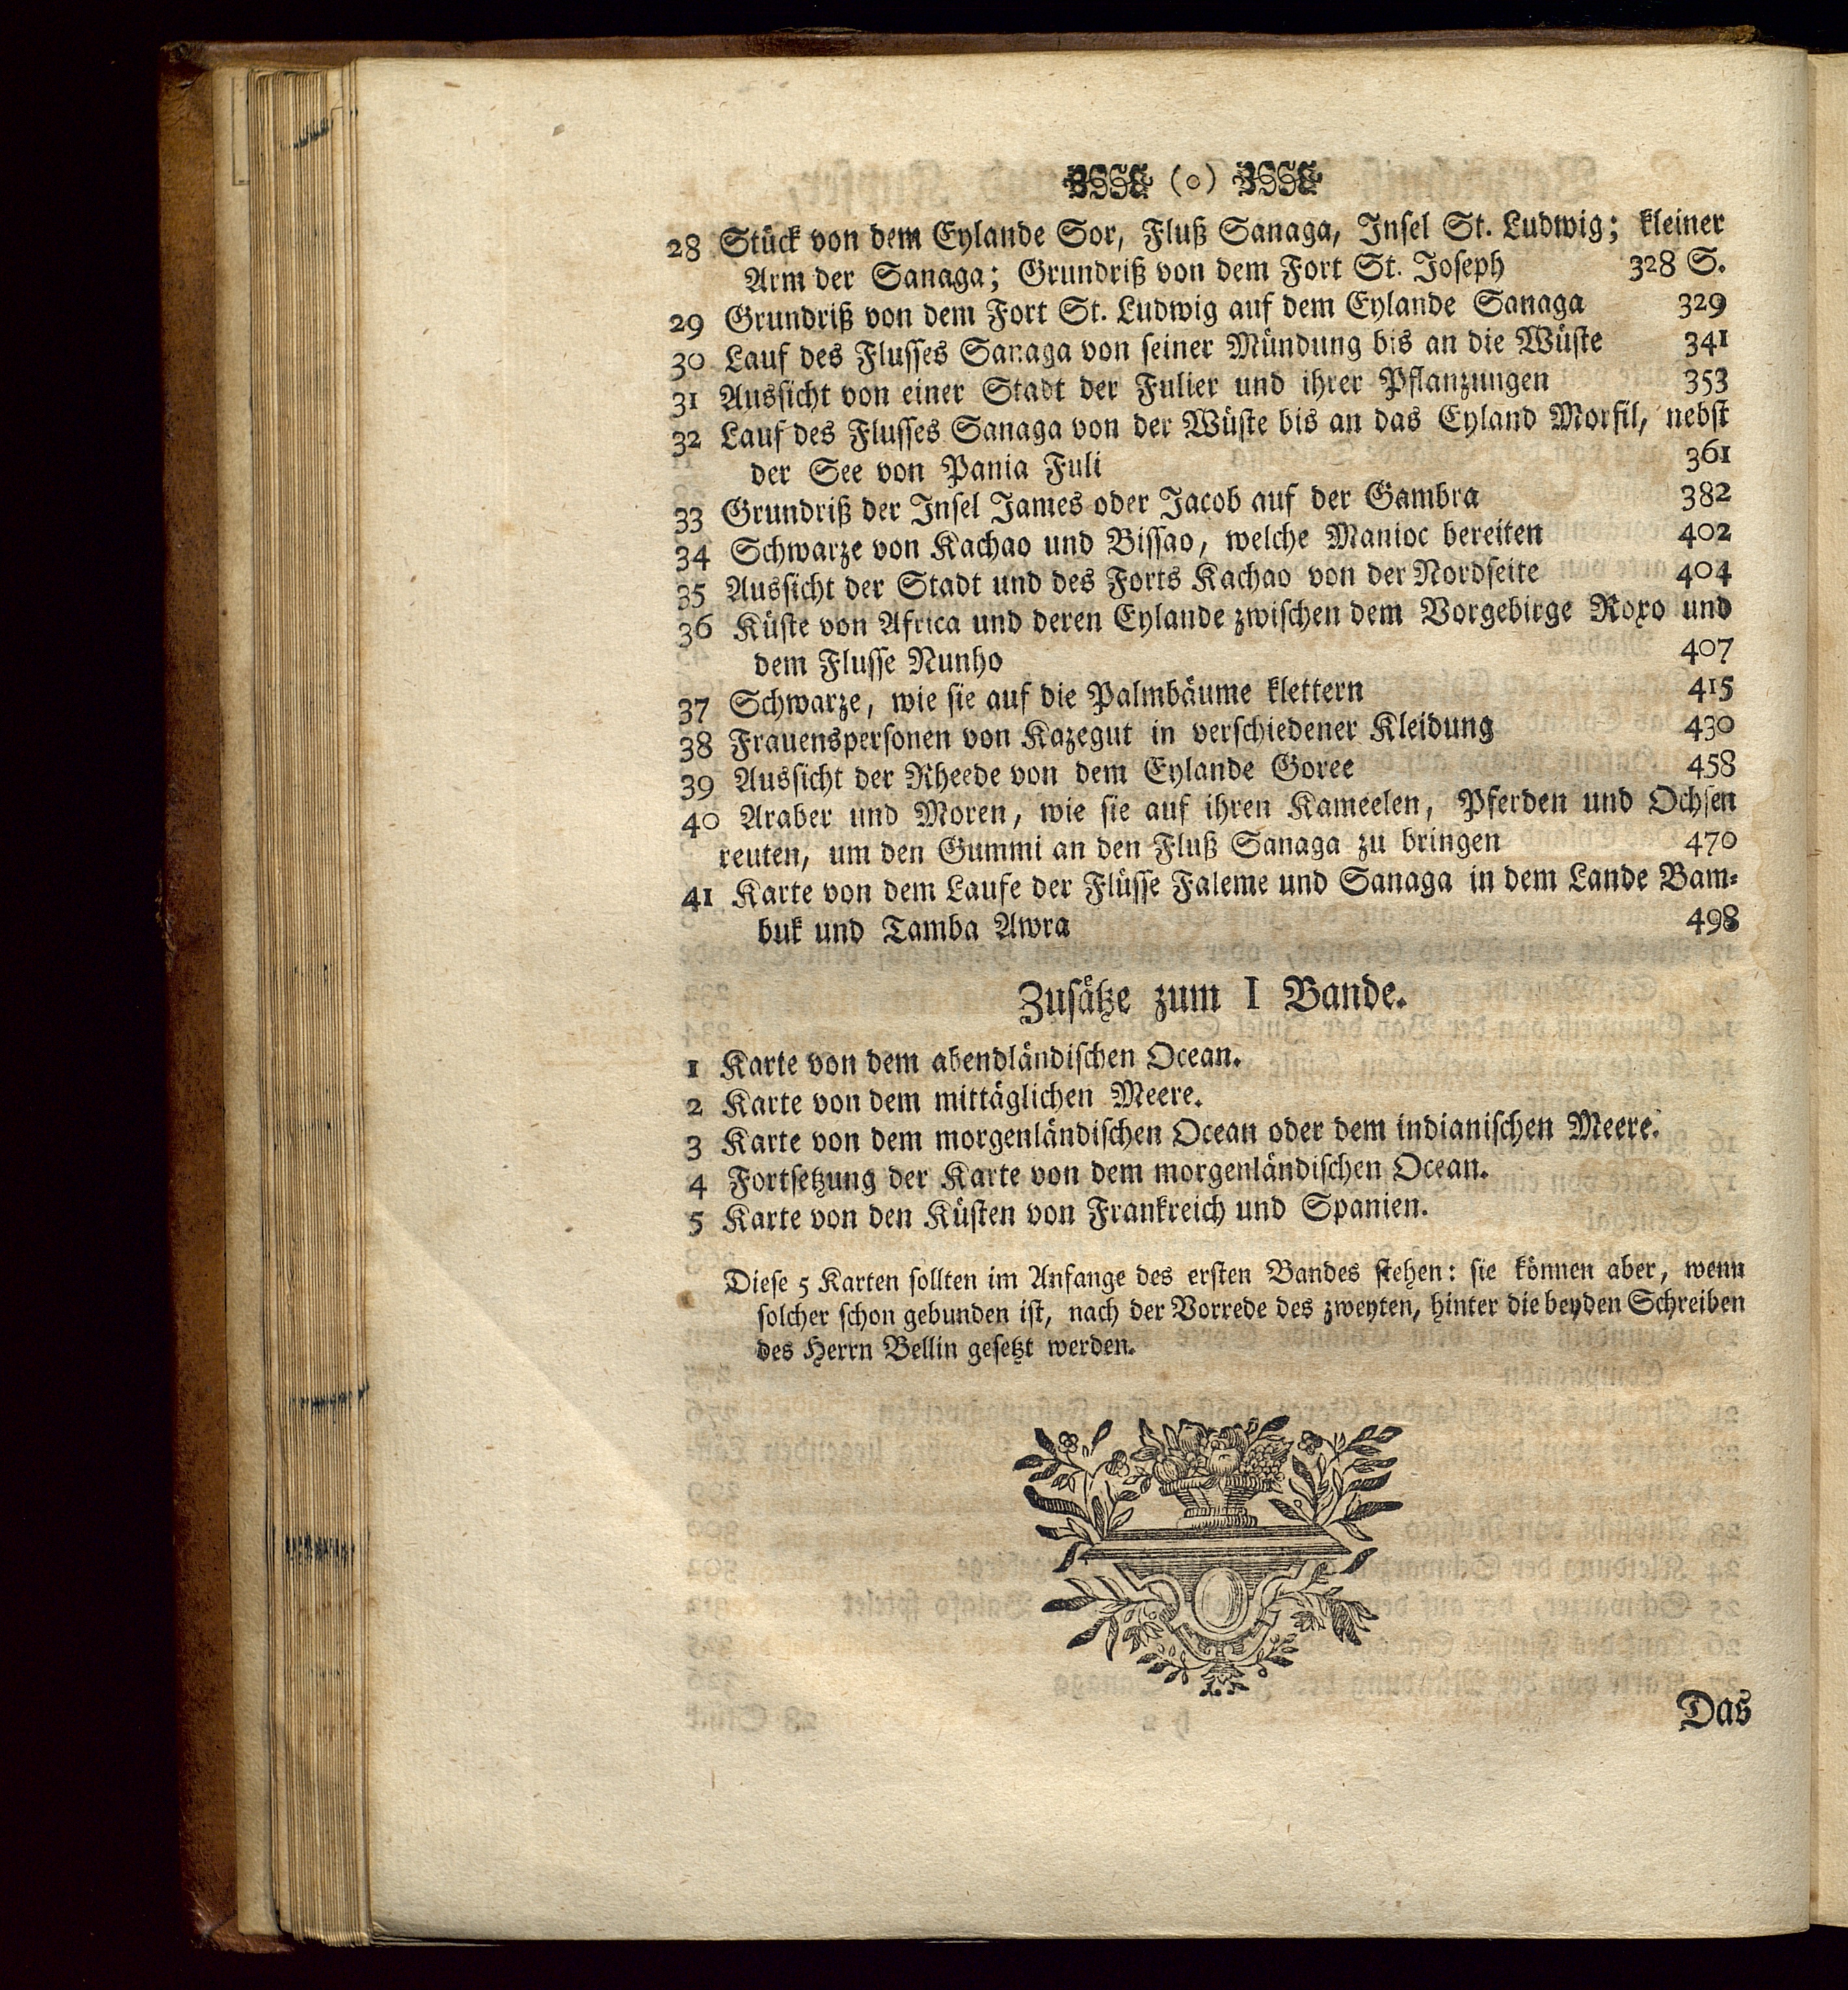 (o)
28 Stück von dem Eylande Sor, Fluß Sanaga, Insel St. Ludwig; kleiner
Arm der Sanaga; Grundriß von dem Fort St. Joseph 328 S.
29 Grundriß von dem Fort St. Ludwig auf dem Eylande Sanaga 329
30 Lauf des Flusses Sanaga von seiner Mündung bis an die Wüste 341
31 Aussicht von einer Stadt der Fulier und ihrer Pflanzungen 353
32 Lauf des Flusses Sanaga von der Wüste bis an das Eyland Morfil, nebst
der See von Pania Fuli 361
33 Grundriß der Insel James oder Jacob auf der Gambra 382
34 Schwarze von Kachao und Bissao, welche Manioc bereiten 402
35 Aussicht der Stadt und des Forts Kachao von der Nordseite 404
36 Küste von Africa und deren Eylande zwischen dem Vorgebirge Roxo und
dem Flusse Nunho 407
37 Schwarze, wie sie auf die Palmbäume klettern 415
38 Frauenspersonen von Kazegut in verschiedener Kleidung 430
39 Aussicht der Rheede von dem Eylande Goree 458
40 Araber und Moren, wie sie auf ihren Kameelen, Pferden und Ochsen
reuten, um den Gummi an den Fluß Sanaga zu bringen 470
41 Karte von dem Laufe der Flüsse Faleme und Sanaga in dem Lande Bam-
buk und Tamba Awra 498
Zusätze zum I Bande.
1 Karte von dem abendländischen Ocean.
2 Karte von dem mittäglichen Meere.
3 Karte von dem morgenländischen Ocean oder dem indianischen Meere.
4 Fortsetzung der Karte von dem morgenländischen Ocean.
5 Karte von den Küsten von Frankreich und Spanien.
Diese 5 Karten sollten im Anfange des ersten Bandes stehen: sie können aber, wenn
solcher schon gebunden ist, nach der Vorrede des zweyten, hinter die beyden Schreiben
des Herrn Bellin gesetzt werden.
Das